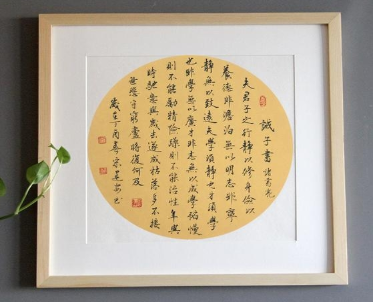 誡子書 諸葛亮
夫君子之行靜以修身儉以
養德非澹泊無以明志非寧
靜無以致遠夫學須靜也才須學
也非學無以廣才非志無以成學韜慢
則不能勵精險躁則不能治性年與
時馳意與歲去遂成枯落多不接
世悲守窮廬將復何及
歲在丁酉春